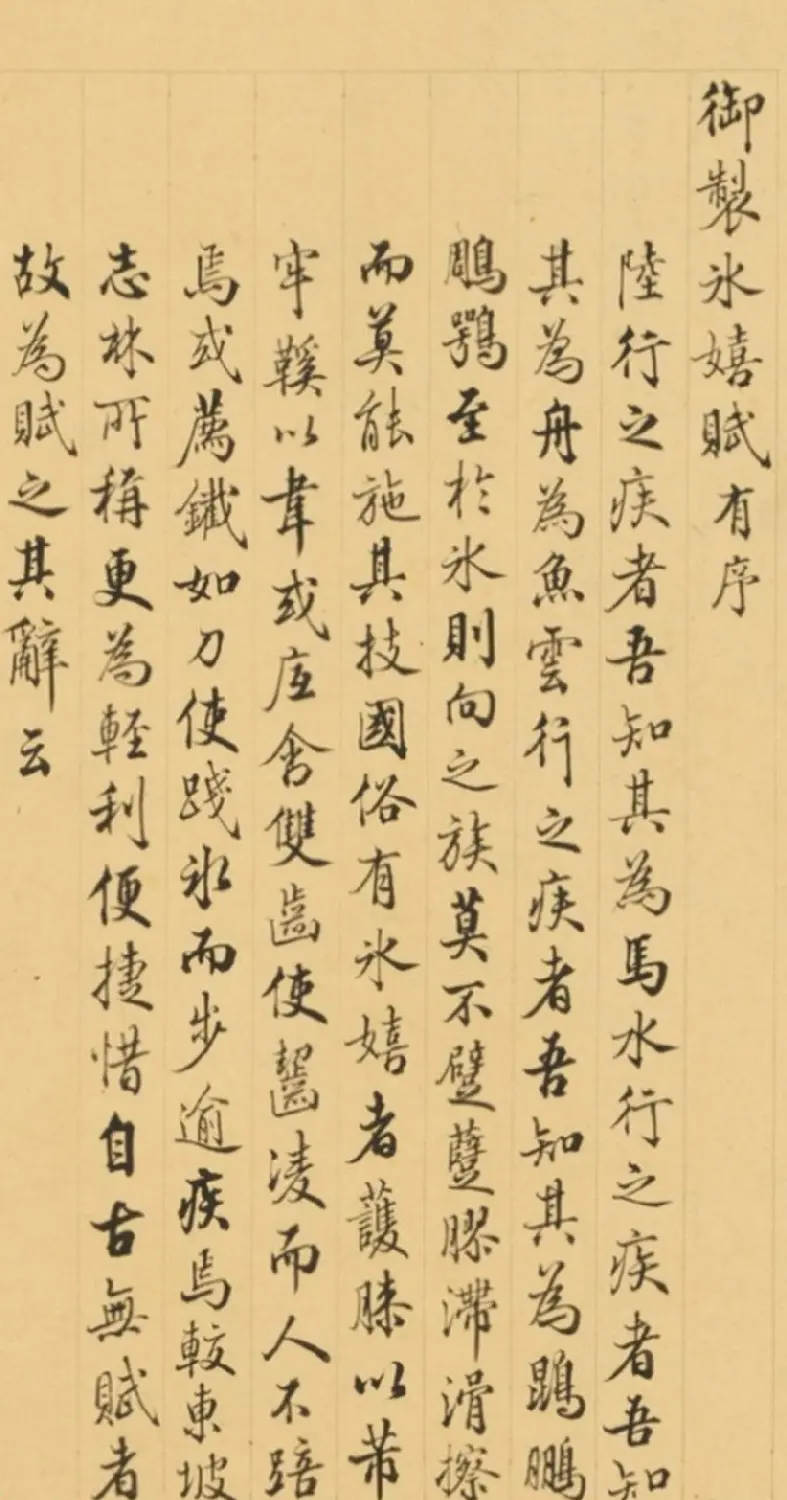 御製氷嬉賦有序
陸行之疾者吾知其為馬水行之疾者吾知
其為舟為魚雲行之疾者吾知其為鵾鵬
鵰鶚至於氷則向之族莫不躄躠膠滯滑擦
而莫能施其技國俗有氷嬉者護膝以芾
牢鞵以韋或底含雙齒使齧凌而人不踣
焉或薦鐵如刀使踐冰而步逾疾焉較東坡
志林所稱更為輕利便捷惜自古無賦者
故為賦之其辭云